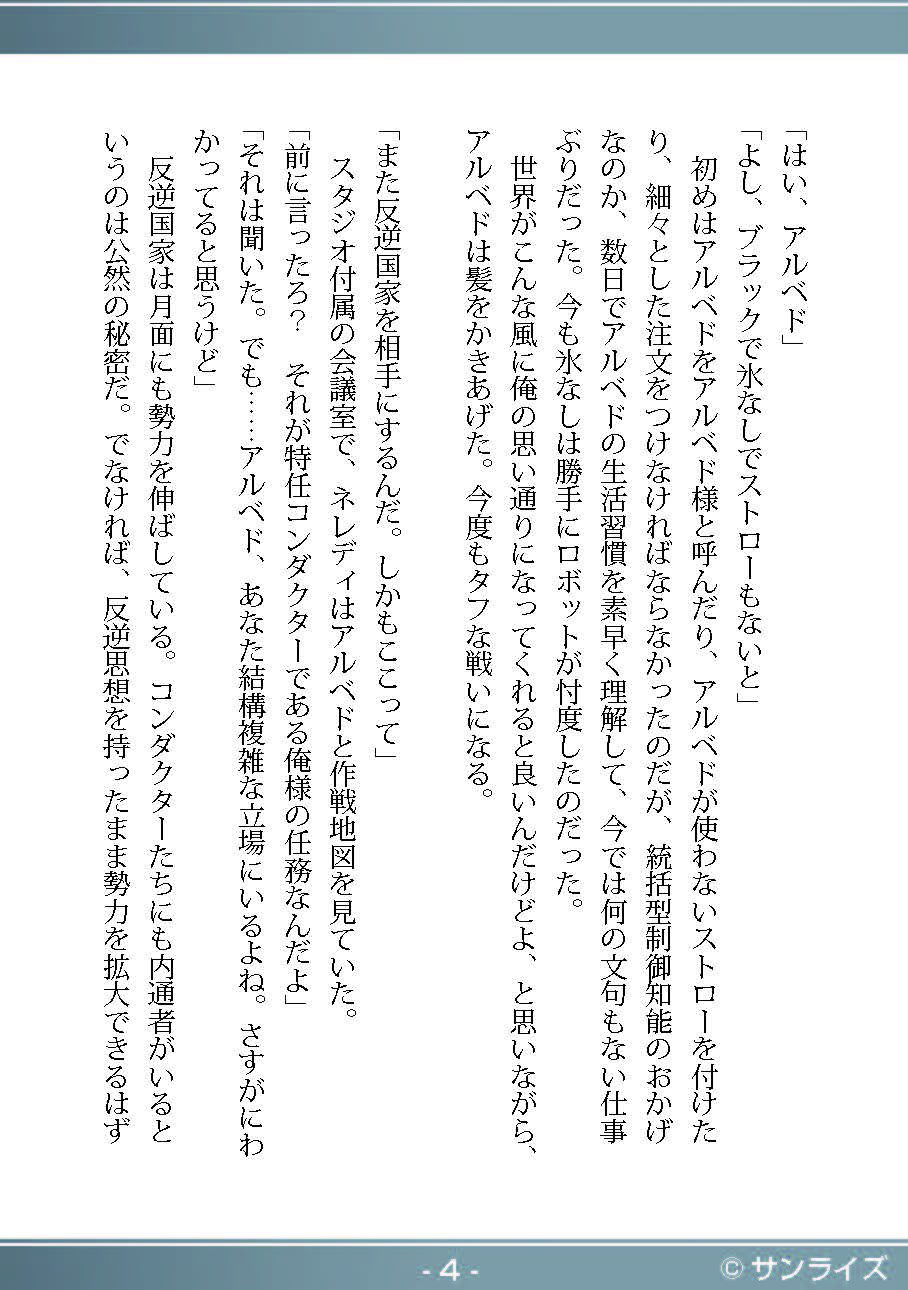 「はい、アルベド」
「よし、ブラックで氷なしでストローもないと」
　初めはアルベドをアルベド様と呼んだり、アルベドが使わないストローを付けた
り、細々とした注文をつけなければならなかったのだが、統括型制御知能のおかげ
なのか、数日でアルベドの生活習慣を素早く理解して、今では何の文句もない仕事
ぶりだった。今も氷なしは勝手にロボットが忖度したのだった。
　世界がこんな風に俺の思い通りになってくれると良いんだけどよ、と思いながら、
アルベドは髪をかきあげた。今度もタフな戦いになる。
「また反逆国家を相手にするんだ。しかもここって」
　スタジオ付属の会議室で、ネレディはアルベドと作戦地図を見ていた。
「前に言ったろ？　それが特任コンダクターである俺様の任務なんだよ」
「それは聞いた。でも……アルベド、あなた結構複雑な立場にいるよね。さすがにわ
かってると思うけど」
　反逆国家は月面にも勢力を伸ばしている。コンダクターたちにも内通者がいると
いうのは公然の秘密だ。でなければ、反逆思想を持ったまま勢力を拡大できるはず
- 4 -
© サンライズ